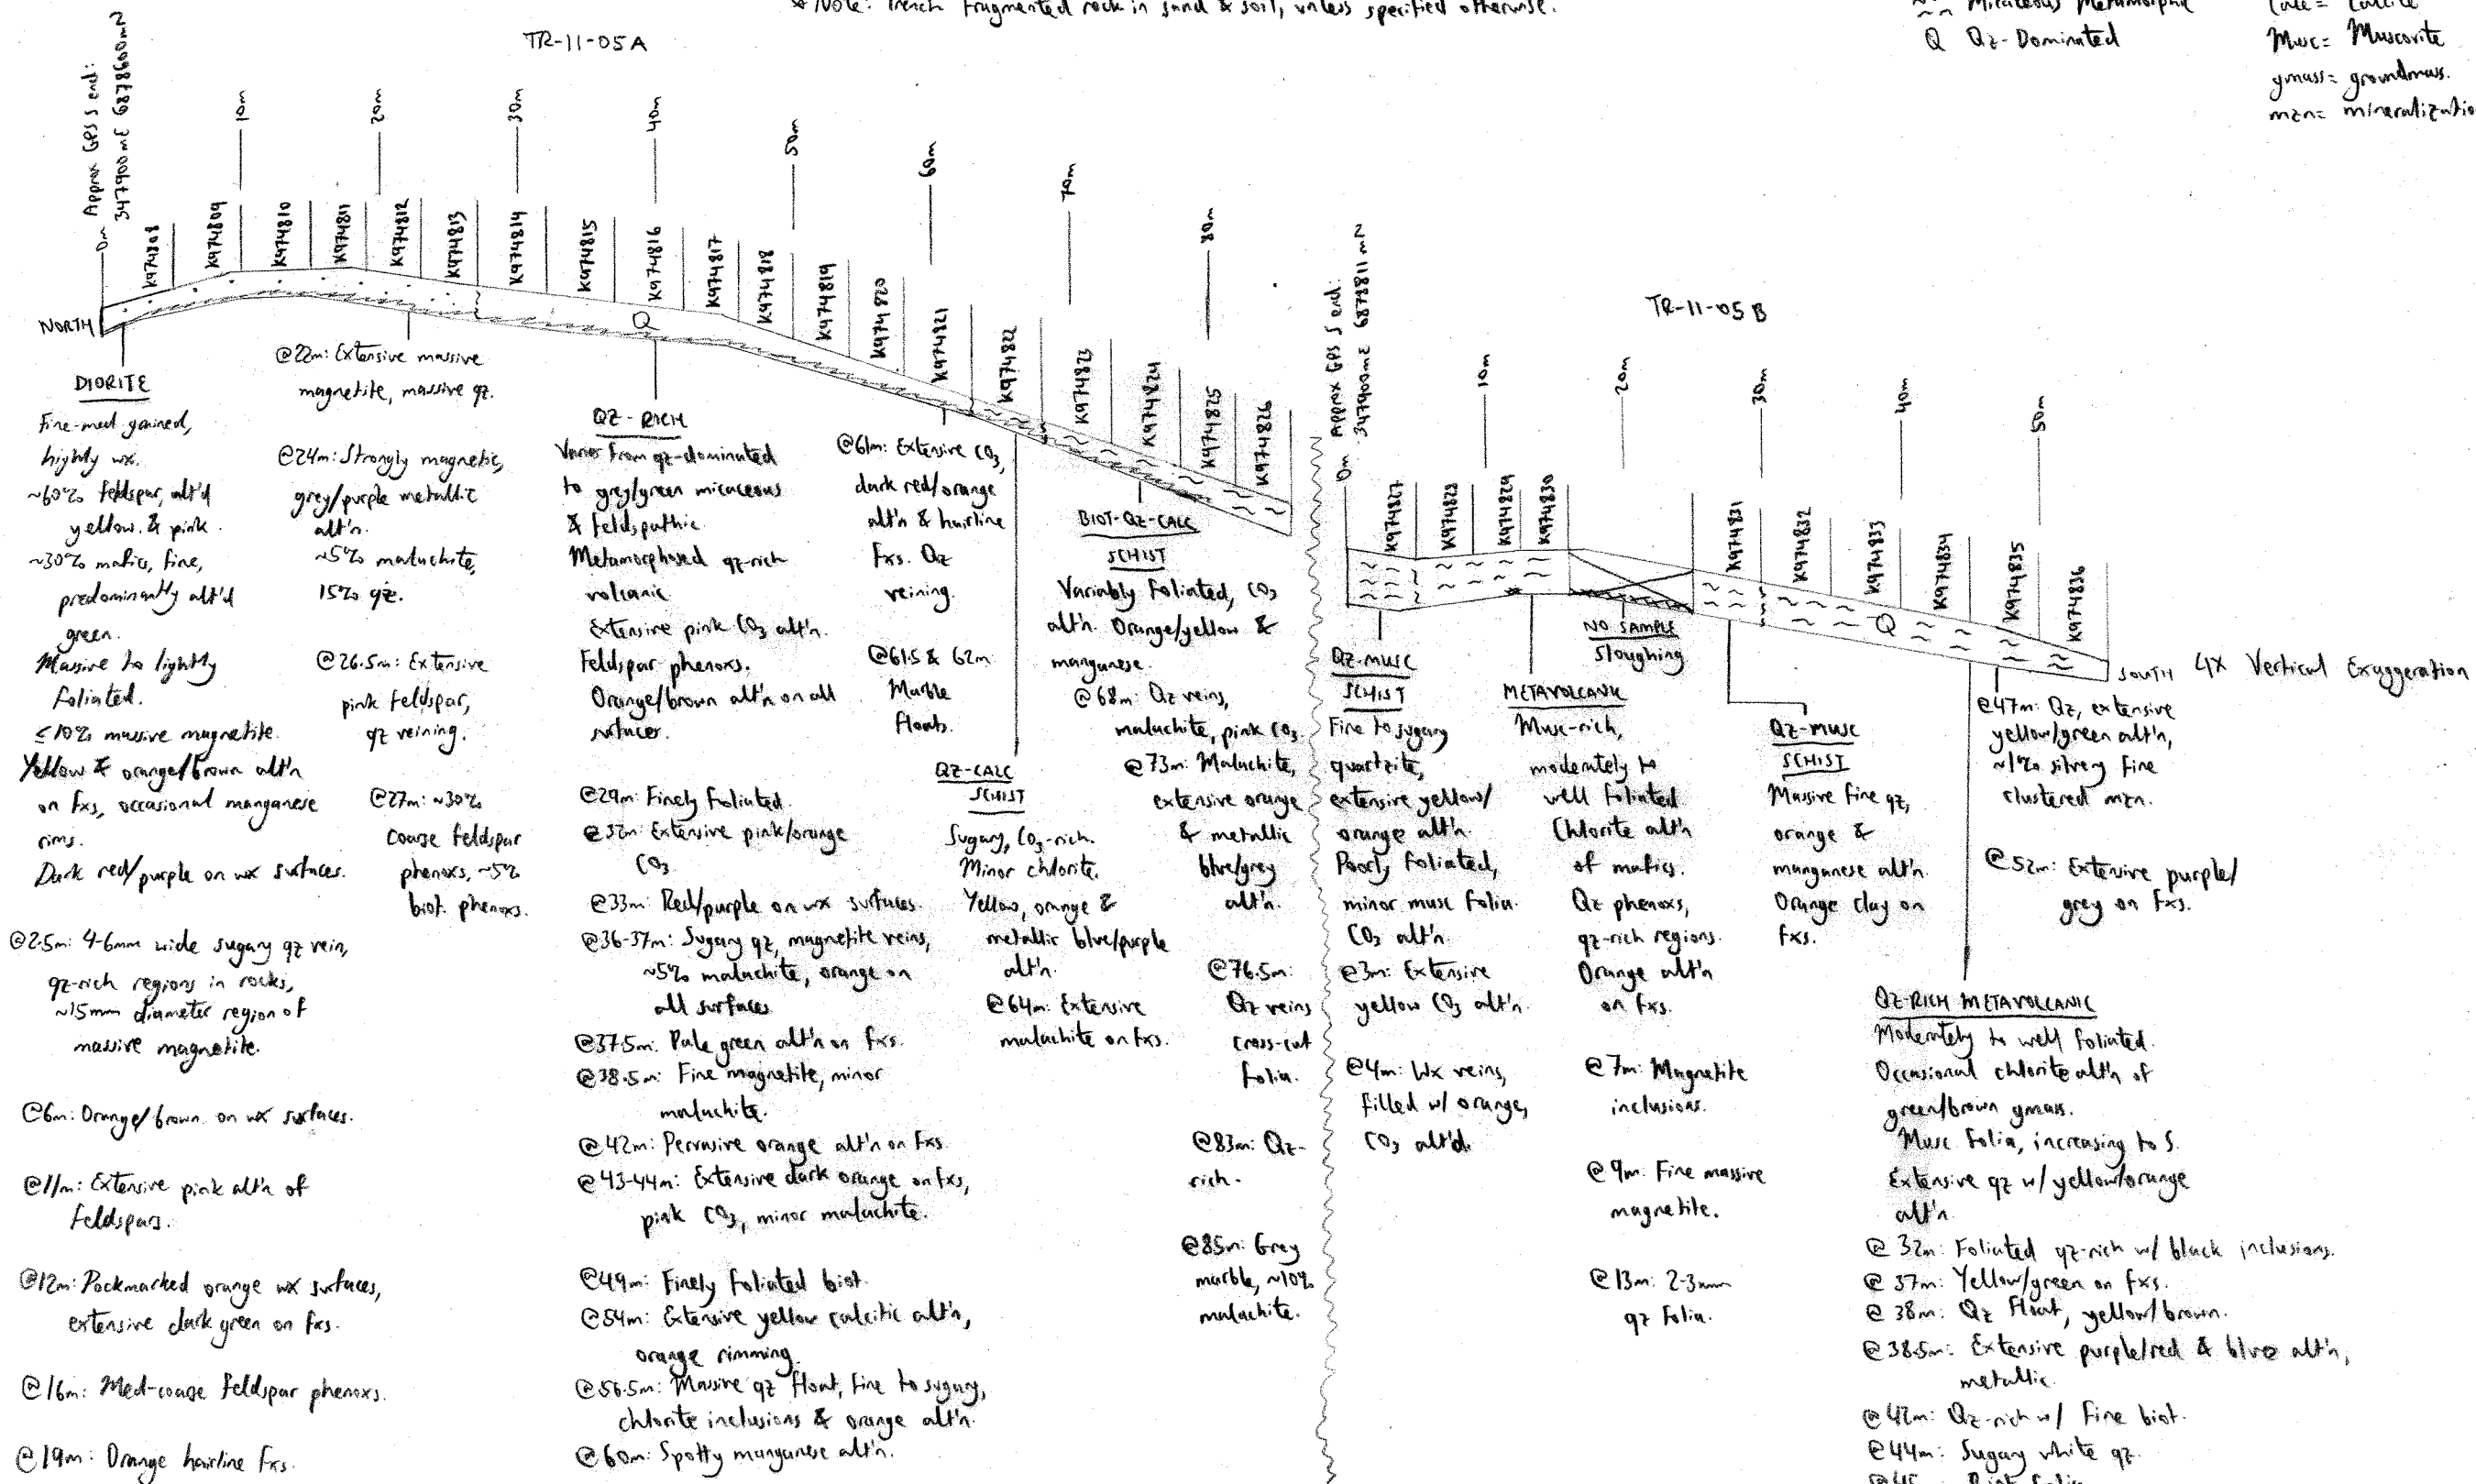 * Note: Trench fragmented rock in sand & soil, unless specified otherwise.
~~ Micaceous Metamorphic
Q Qz-Dominated
Calc = Calcite
Musc = Muscovite
gmass = groundmass.
mzn = mineralizatio
TR-11-05A
Approx GPS S end:
347900mE 6878600mN
0m
10m
20m
30m
40m
50m
60m
70m
80m
K974808
K974809
K974810
K974811
K974812
K974813
K974814
K974815
K974816
K974817
K974818
K974819
K974820
K974821
K974822
K974823
K974824
K974825
K974826
NORTH
Q
DIORITE
Fine-med grained,
highly wx.
~60% feldspar, alt'd
yellow & pink.
~30% mafics, fine,
predominantly alt'd
green.
Massive to lightly
foliated.
≤10% massive magnetite.
Yellow & orange/brown alt'n
on fxs, occasional manganese
rims.
Dark red/purple on wx surfaces.
@2.5m: 4-6mm wide sugary qz vein,
qz-rich regions in rocks,
~15mm diameter region of
massive magnetite.
@6m: Orange/brown on wx surfaces.
@11m: Extensive pink alt'n of
feldspars.
@12m: Pockmarked orange wx surfaces,
extensive dark green on fxs.
@16m: Med-coarse feldspar phenoxs.
@19m: Orange hairline fxs.
@22m: Extensive massive
magnetite, massive qz.
@24m: Strongly magnetic,
grey/purple metallic
alt'n.
~5% malachite,
15% qz.
@26.5m: Extensive
pink feldspar,
qz veining.
@27m: ~30%
coarse feldspar
phenoxs, ~5%
biot. phenoxs.
QZ-RICH
Varies from qz-dominated
to grey/green micaceous
& feldspathic.
Metamorphosed qz-rich
volcanic
Extensive pink CO3 alt'n.
Feldspar phenoxs.
Orange/brown alt'n on all
surfaces.
@29m: Finely foliated.
@32m: Extensive pink/orange
CO3
@33m: Red/purple on wx surfaces.
@36-37m: Sugary qz, magnetite veins,
~5% malachite, orange on
all surfaces
@37.5m: Pale green alt'n on fxs.
@38.5m: Fine magnetite, minor
malachite.
@42m: Pervasive orange alt'n on fxs.
@43-44m: Extensive dark orange on fxs,
pink CO3, minor malachite.
@49m: Finely foliated biot.
@54m: Extensive yellow calcitic alt'n,
orange rimming.
@56.5m: Massive qz float, fine to sugary,
chlorite inclusions & orange alt'n.
@60m: Spotty manganese alt'n.
@61m: Extensive CO3,
dark red/orange
alt'n & hairline
fxs. Qz
veining.
@61.5 & 62m:
Marble
floats.
QZ-CALC
SCHIST
Sugary, CO3-rich.
Minor chlorite.
Yellow, orange &
metallic blue/purple
alt'n.
@64m: Extensive
malachite on fxs.
BIOT-QZ-CALC
SCHIST
Variably foliated, CO3
alt'n. Orange/yellow &
manganese.
@68m: Qz veins,
malachite, pink CO3.
@73m: Malachite,
extensive orange
& metallic
blue/grey
alt'n.
@76.5m:
Qz veins
cross-cut
folia.
@83m: Qz-
rich.
@85m: Grey
marble, ~10%
malachite.
TR-11-05B
Approx GPS S end:
347900mE 6878811mN
0m
10m
20m
30m
40m
50m
K974827
K974828
K974829
K974830
K974831
K974832
K974833
K974834
K974835
K974836
Q
SOUTH 4X Vertical Exaggeration
QZ-MUSC
SCHIST
Fine to sugary
quartzite,
extensive yellow/
orange alt'n.
Poorly foliated,
minor musc folia.
CO3 alt'n.
@3m: Extensive
yellow CO3 alt'n.
@4m: Wx veins,
filled w/ orange,
CO3 alt'd.
METAVOLCANIC
Musc-rich,
moderately to
well foliated.
Chlorite alt'n
of mafics.
Qz phenoxs,
qz-rich regions.
Orange alt'n
on fxs.
@7m: Magnetite
inclusions.
@9m: Fine massive
magnetite.
@13m: 2-3mm
qz folia.
NO SAMPLE
Sloughing
QZ-MUSC
SCHIST
Massive fine qz,
orange &
manganese alt'n.
Orange clay on
fxs.
QZ-RICH METAVOLCANIC
Moderately to well foliated.
Occasional chlorite alt'n of
green/brown gmass.
Musc folia, increasing to S.
Extensive qz w/ yellow/orange
alt'n.
@32m: Foliated qz-rich w/ black inclusions.
@37m: Yellow/green on fxs.
@38m: Qz float, yellow/brown.
@38.5m: Extensive purple/red & blue alt'n,
metallic.
@42m: Qz-rich w/ fine biot.
@44m: Sugary white qz.
@47m: Qz, extensive
yellow/green alt'n,
~1% silvery fine
clustered mzn.
@52m: Extensive purple/
grey on fxs.